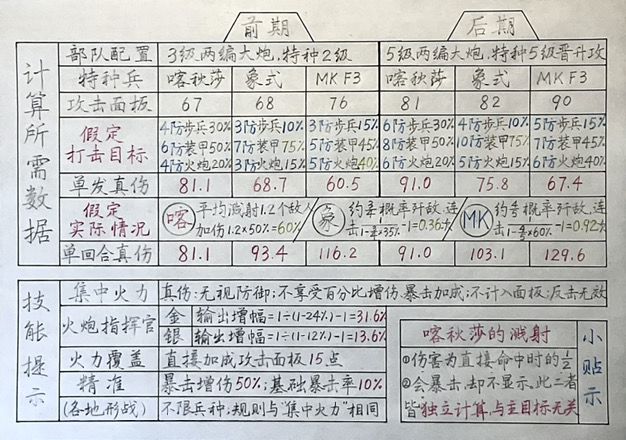 前期 后期
计算所需数据
部队配置 3级两编大炮,特种2级 5级两编大炮,特种5级晋升攻
特种兵 喀秋莎 象式 MK F3 喀秋莎 象式 MK F3
攻击面板 67 68 76 81 82 90
假定打击目标
4防步兵30% 3防步兵10% 3防步兵15% 6防步兵30% 4防步兵10% 5防步兵15%
6防装甲50% 7防装甲75% 5防装甲45% 8防装甲50% 10防装甲75% 7防装甲45%
4防火炮20% 3防火炮15% 5防火炮40% 6防火炮20% 5防火炮15% 6防火炮40%
单发真伤 81.1 68.7 60.5 91.0 75.8 67.4
假定实际情况
喀 平均溅射1.2个敌人 加伤1.2×50%=60%
象 概率歼敌,连击 -1=0.36次
MK 概率歼敌,连击 -1=0.92次
单回合真伤 81.1 93.4 116.2 91.0 103.1 129.6
技能提示
集中火力 真伤:无视防御;不享受百分比增伤、暴击加成;不计入面板;反击无效
火炮指挥官
金 输出增幅=1÷(1-24%)-1=31.6%
银 输出增幅=1÷(1-12%)-1=13.6%
火力覆盖 直接加成攻击面板15点
精准 暴击增伤50%;基础暴击率10%
(各地形战) 不限兵种;规则与"集中火力"相同
喀秋莎的溅射
①伤害为直接命中时的1/2
②会暴击,却不显示,此二者
皆"独立计算,与主目标无关
小贴示